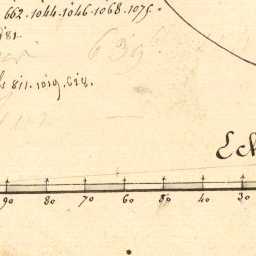 662.1044.1046.1068.1076.
181.
639
811.1019.618.
Ech
90 80 70 60 50 40 30